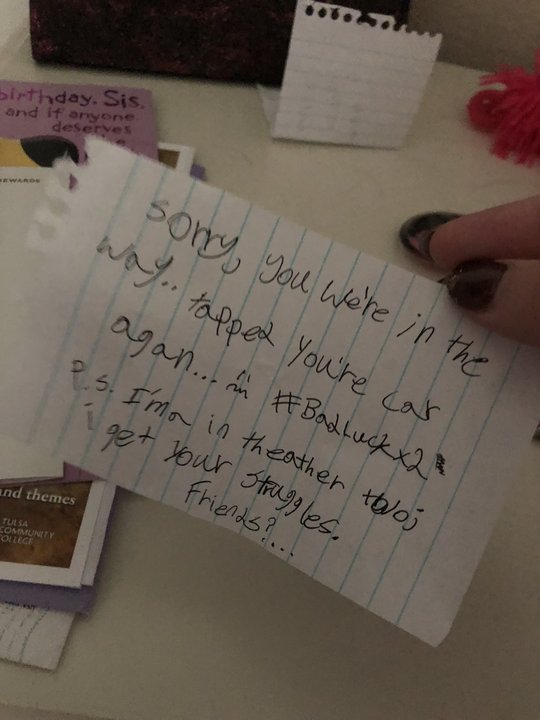 birthday. Sis.
and if anyone
deserves
EWARDS
sorry, you we're in the
way.. tapped you're car
agan... #BadLuckx2
P.s. I'ma in theather
i get your struggles.
Friends?...
nd themes
TULSA
COMMUNITY
COLLEGE